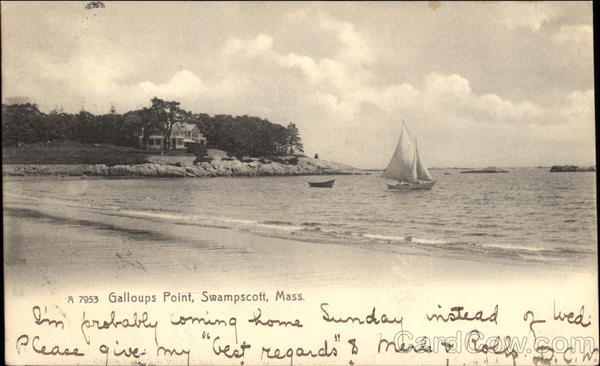 A 7953 Galloups Point, Swampscott, Mass.
I'm probably coming home Sunday instead of Wed.
Please give my "best regards" & D.C.W.
CardCow.com